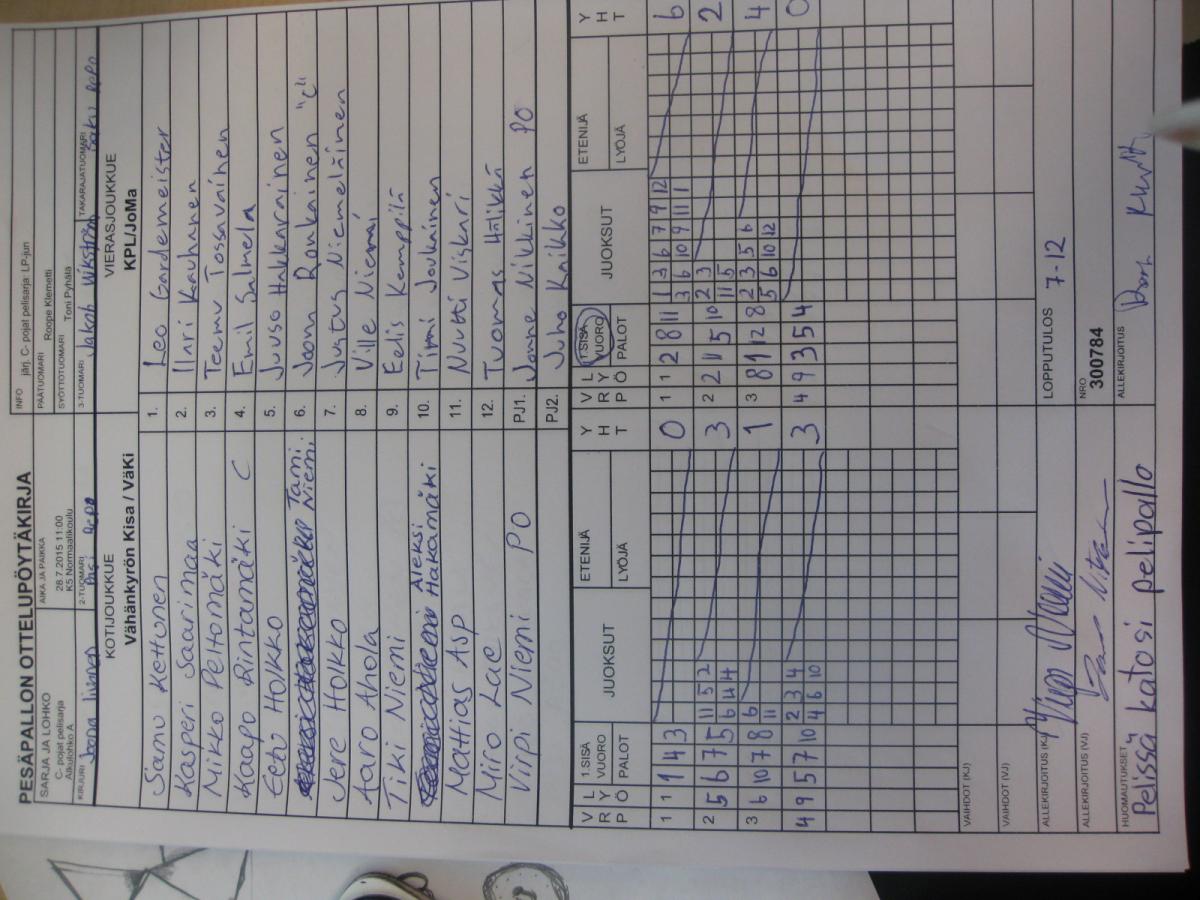 PESÄPALLON OTTELUPÖYTÄKIRJA
SARJA JA LOHKO
C- pojat pelisarja
Alkulohko A
AIKA JA PAIKKA
28.7.2015 11:00
K5 Normaalikoulu
INFO järj. C- pojat pelisarja: LP-jun
PÄÄTUOMARI Roope Klemetti
SYÖTTÖTUOMARI Toni Pyhälä
KIRJURI
2-TUOMARI
3-TUOMARI Jakob Wikström
TAKARAJATUOMARI
KOTIJOUKKUE
Vähänkyrön Kisa / VäKi
VIERASJOUKKUE
KPL/JoMa
Samu Kettonen 1. Leo Gardemeister
Kasperi Saarimaa 2. Ilari Kauhanen
Mikko Peltomäki 3. Teemu Tossavainen
Kaapo Rintamäki C 4. Emil Salmela
Eetu Holkko 5. Juuso Hakkarainen
Tami Niemi 6. Joona Ronkainen "C"
Jere Holkko 7. Justus Niemeläinen
Aaro Ahola 8. Ville Niemi
Tiki Niemi 9. Eelis Kemppilä
Aleksi Hakamäki 10. Timi Joukainen
Mattias Asp 11. Nuutti Viskari
Miro Lae 12. Tuomas Hälikkä
Virpi Niemi PO PJ1. Jonne Nikkinen PO
PJ2. Juho Kaikko
V R P L Y Ö 1.SISÄ VUORO PALOT JUOKSUT ETENIJÄ LYÖJÄ Y H T V R P L Y Ö 1.SISÄ VUORO PALOT JUOKSUT ETENIJÄ LYÖJÄ Y H T
1 1 1 4 3 0 1 1 2 8 11 1 3 6 7 9 12 6
3 6 10 9 11 1
2 5 6 7 5 11 5 2 3 2 2 11 5 10 2 3 2
6 4 4 11 5
3 6 10 7 8 6 1 3 8 1 12 8 2 3 5 6 4
11 5 6 10 12
4 9 5 7 10 2 3 4 3 4 9 3 5 4 0
4 6 10
VAIHDOT (KJ)
VAIHDOT (VJ)
ALLEKIRJOITUS (KJ)
LOPPUTULOS 7-12
ALLEKIRJOITUS (VJ)
NRO
300784
HUOMAUTUKSET
Pelissä katosi pelipallo
ALLEKIRJOITUS